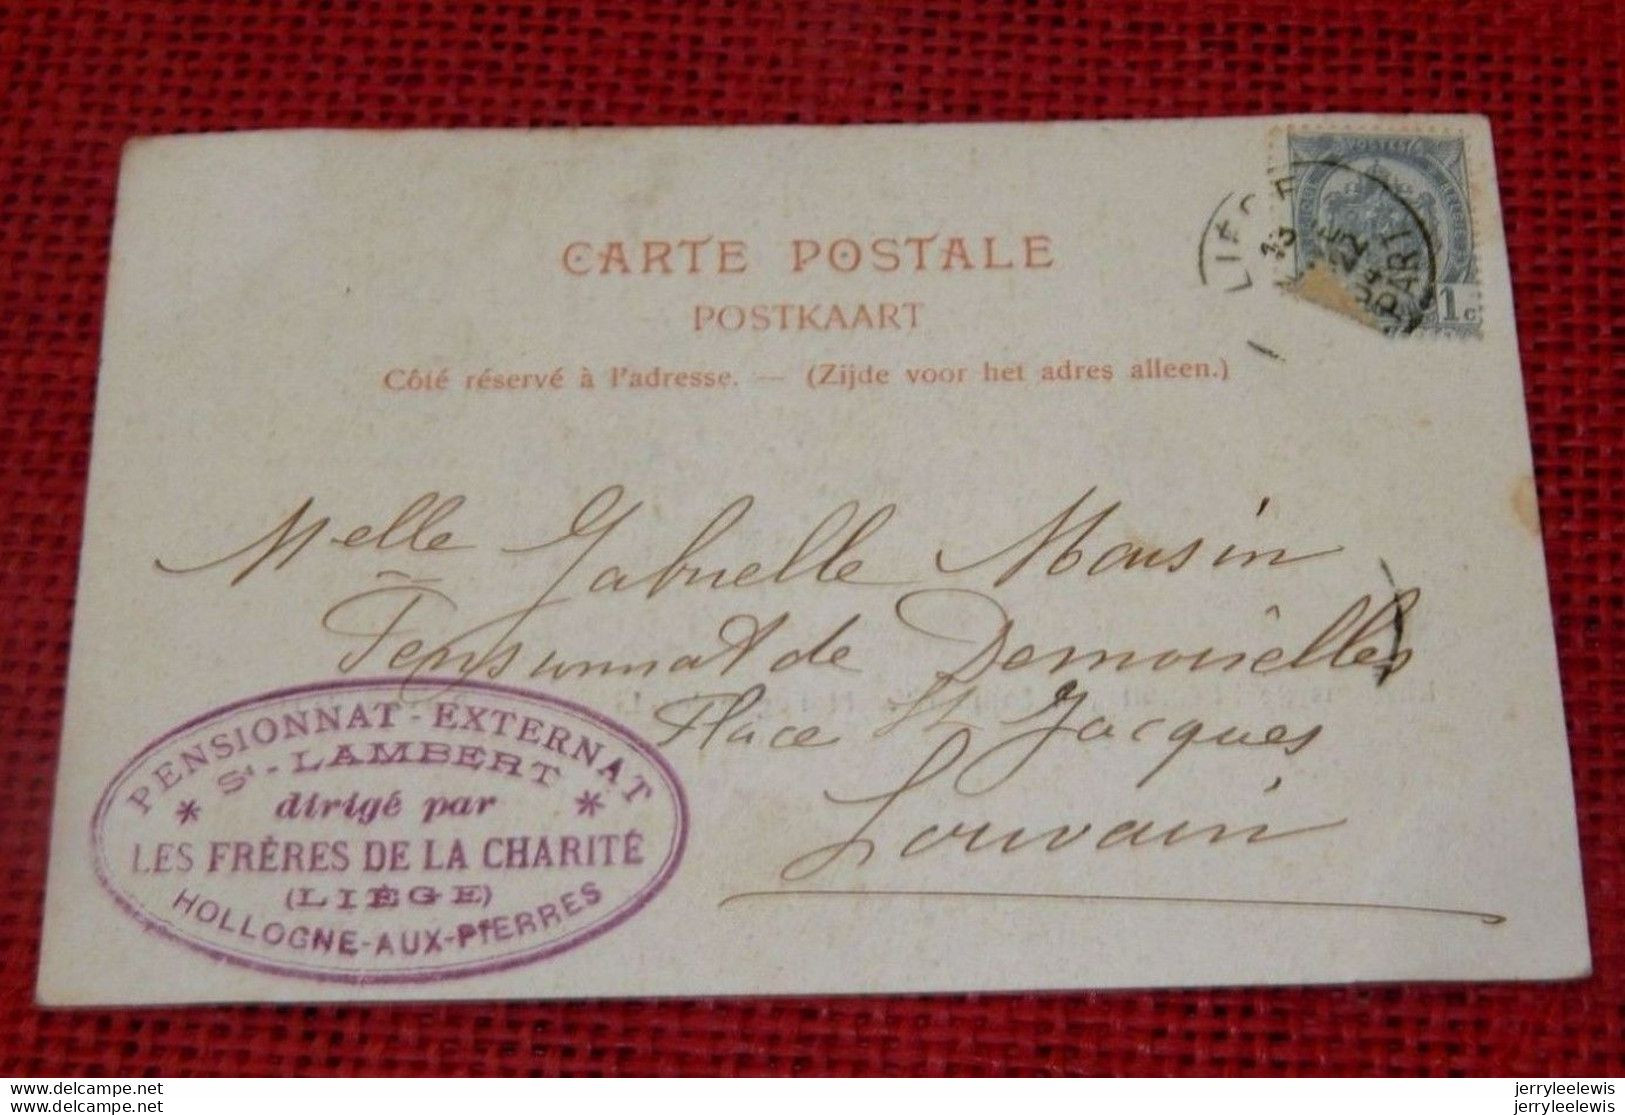 CARTE POSTALE
POSTKAART
Côté réservé à l'adresse. — (Zijde voor het adres alleen.)
POSTES
1c
LIÉGE
13
22
DÉPART
Melle Gabrielle Mousin
Pensionnat de Demoiselles
Place St Jacques
Louvain
PENSIONNAT-EXTERNAT
* St-LAMBERT *
dirigé par
LES FRÈRES DE LA CHARITÉ
(LIÉGE)
HOLLOGNE-AUX-PIERRES
www.delcampe.net
www.delcampe.net
jerryleelewis
jerryleelewis